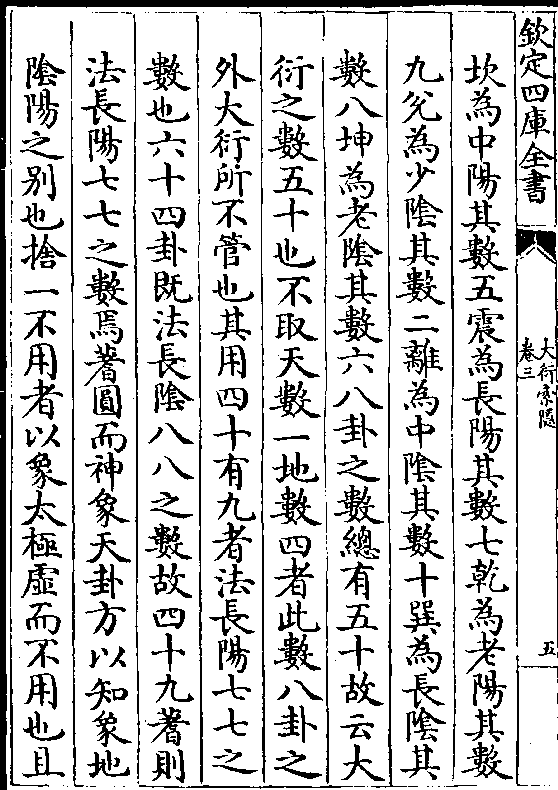 欽定四庫全書
大衍索隱
卷三
五
坎為中陽其數五震為長陽其數七乾為老陽其數
九兌為少陰其數二離為中陰其數十巽為長陰其
數八坤為老陰其數六八卦之數總有五十故云大
衍之數五十也不取天數一地數四者此數八卦之
外大衍所不管也其用四十有九者法長陽七七之
數也六十四卦既法長陰八八之數故四十九蓍則
法長陽七七之數焉蓍圓而神象天卦方以知象地
陰陽之别也捨一不用者以象太極虛而不用也且